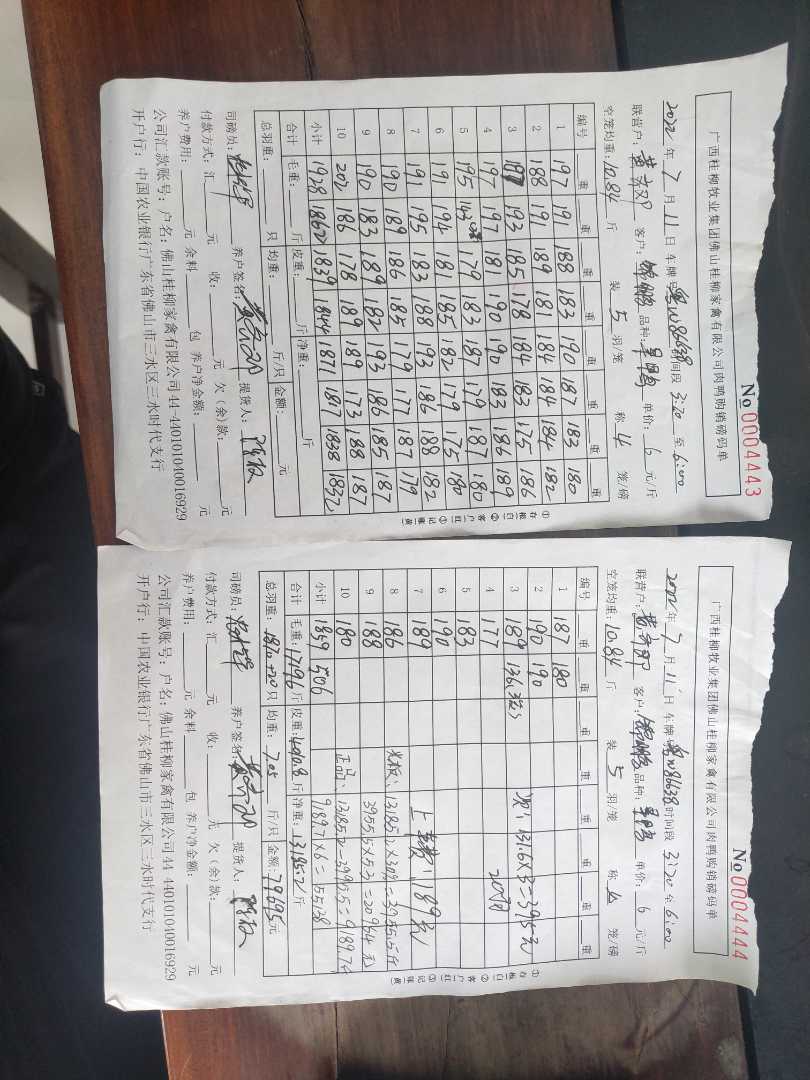 广西桂柳牧业集团佛山桂柳家禽有限公司肉鸭购销磅码单
No 0004443
2022年7月11日 车牌号:粤W86638 时间段 3:20 至 6:00
联营户: 客户: 品种: 单价: 6 元/斤
空笼均重: 10.84 斤 装 5 羽/笼 称 4 笼/磅
编号 重 重 重 重 重 重 重 重
1 197 191 188 183 190 187 183 180
2 188 191 189 181 184 184 184 182
3 193 185 178 184 183 175 186
4 197 197 181 190 190 183 186 189
5 195 179 183 187 179 187 180
6 191 194 181 185 182 179 175 180
7 191 195 183 188 193 186 188 182
8 190 189 186 185 179 177 187 179
9 190 183 189 182 193 186 185 187
10 202 186 178 189 189 173 188 187
小计 1928 1862 1839 1844 1871 1817 1838 1832
合计 毛重: 斤 皮重: 斤 净重: 斤
总羽重: 只 均重: 斤/只 金额: 元
司磅员: 养户签名: 提货人:
付款方式: 汇 元 收: 元 欠(余)款: 元
养户费用: 元 余料 包 养户净金额: 元
公司汇款账号: 户名: 佛山桂柳家禽有限公司 44-440101040016929
开户行: 中国农业银行广东省佛山市三水区三水时代支行
①存根白 ②客户红 ③记账黄
广西桂柳牧业集团佛山桂柳家禽有限公司肉鸭购销磅码单
No 0004444
2022年7月11日 车牌号:粤W86638 时间段 3:20 至 6:00
联营户: 客户: 品种: 单价: 6 元/斤
空笼均重: 10.84 斤 装 5 羽/笼 称 4 笼/磅
编号 重 重 重 重 重 重 重 重
1 187 180
2 190 190
3 189 136(3笼)
4 177
5 183
6 190
7 189
8 186
9 188
10 180
小计 1859 506
131.6×3=395元
20只
上车费:189元
13185.2×30%=3955.5斤
3955.5×5.3=20964元
正品: 13185.2-3995.5=9189.7斤
9189.7×6=55138
合计 毛重: 17196 斤 皮重: 4010.8 斤 净重: 13185.2 斤
总羽重: 1870+20 只 均重: 7.05 斤/只 金额: 79695 元
司磅员: 养户签名: 提货人:
付款方式: 汇 元 收: 元 欠(余)款: 元
养户费用: 元 余料 包 养户净金额: 元
公司汇款账号: 户名: 佛山桂柳家禽有限公司 44-440101040016929
开户行: 中国农业银行广东省佛山市三水区三水时代支行
①存根白 ②客户红 ③记账黄